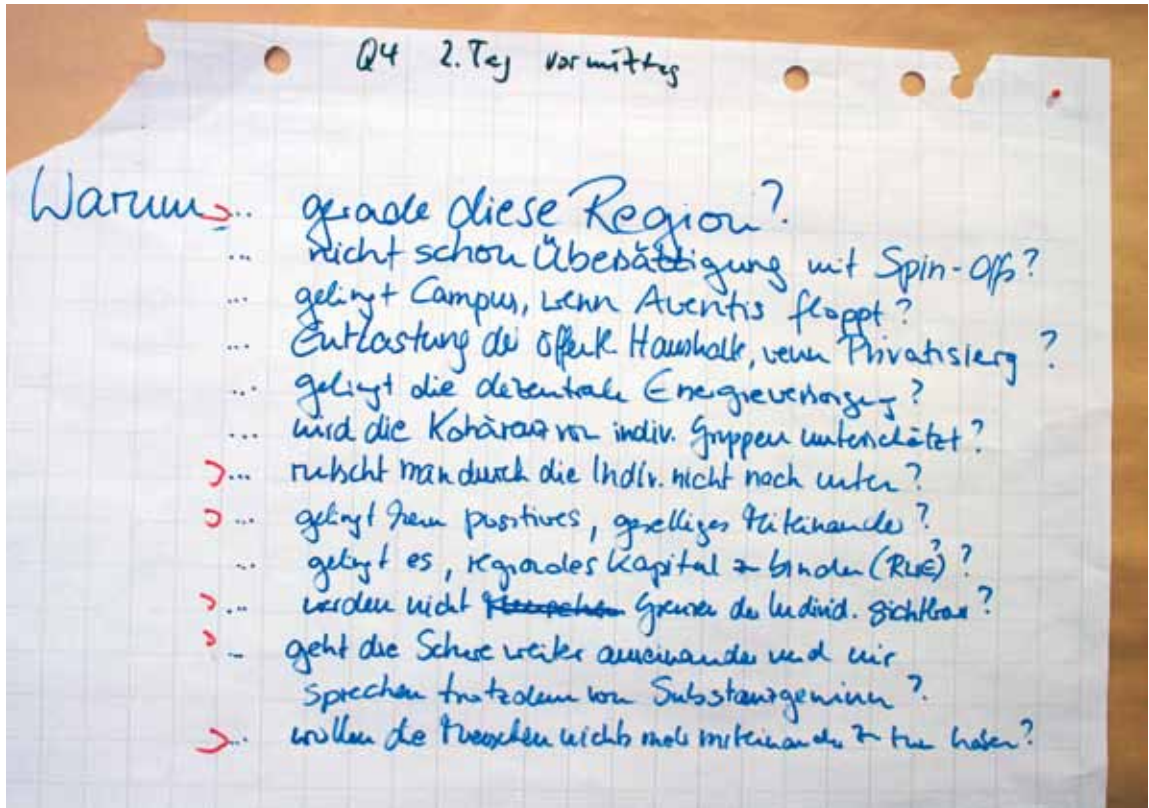 Q4 2. Tag vormittag
Warum ... gerade diese Region?
... nicht schon Übersättigung mit Spin-Offs?
... gelingt Campus, wenn Aventis floppt?
... Entlastung der öffentl. Haushalte, wenn Privatisierg ?
... gelingt die dezentrale Energieversorgung?
... wird die Kohäranz von indiv. Gruppen unterschätzt?
... rutscht man durch die Indiv. nicht nach unten?
... gelingt positives, geselliges Miteinander?
... gelingt es, regionales Kapital zu binden (RWE)?
... werden nicht Grenzen der Individ. sichtbar?
... geht die Schere weiter auseinander und wir
sprechen trotzdem von Substanzgewinn?
... wollen die Menschen nichts mehr miteinander zu tun haben?